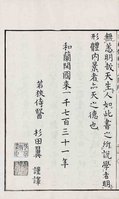 無恙明教天生人如此書之所説學者明
形體内景者亦天之德也
和蘭開國来一千七百三十一年
若狭侍醫 杉田翼 謹譯